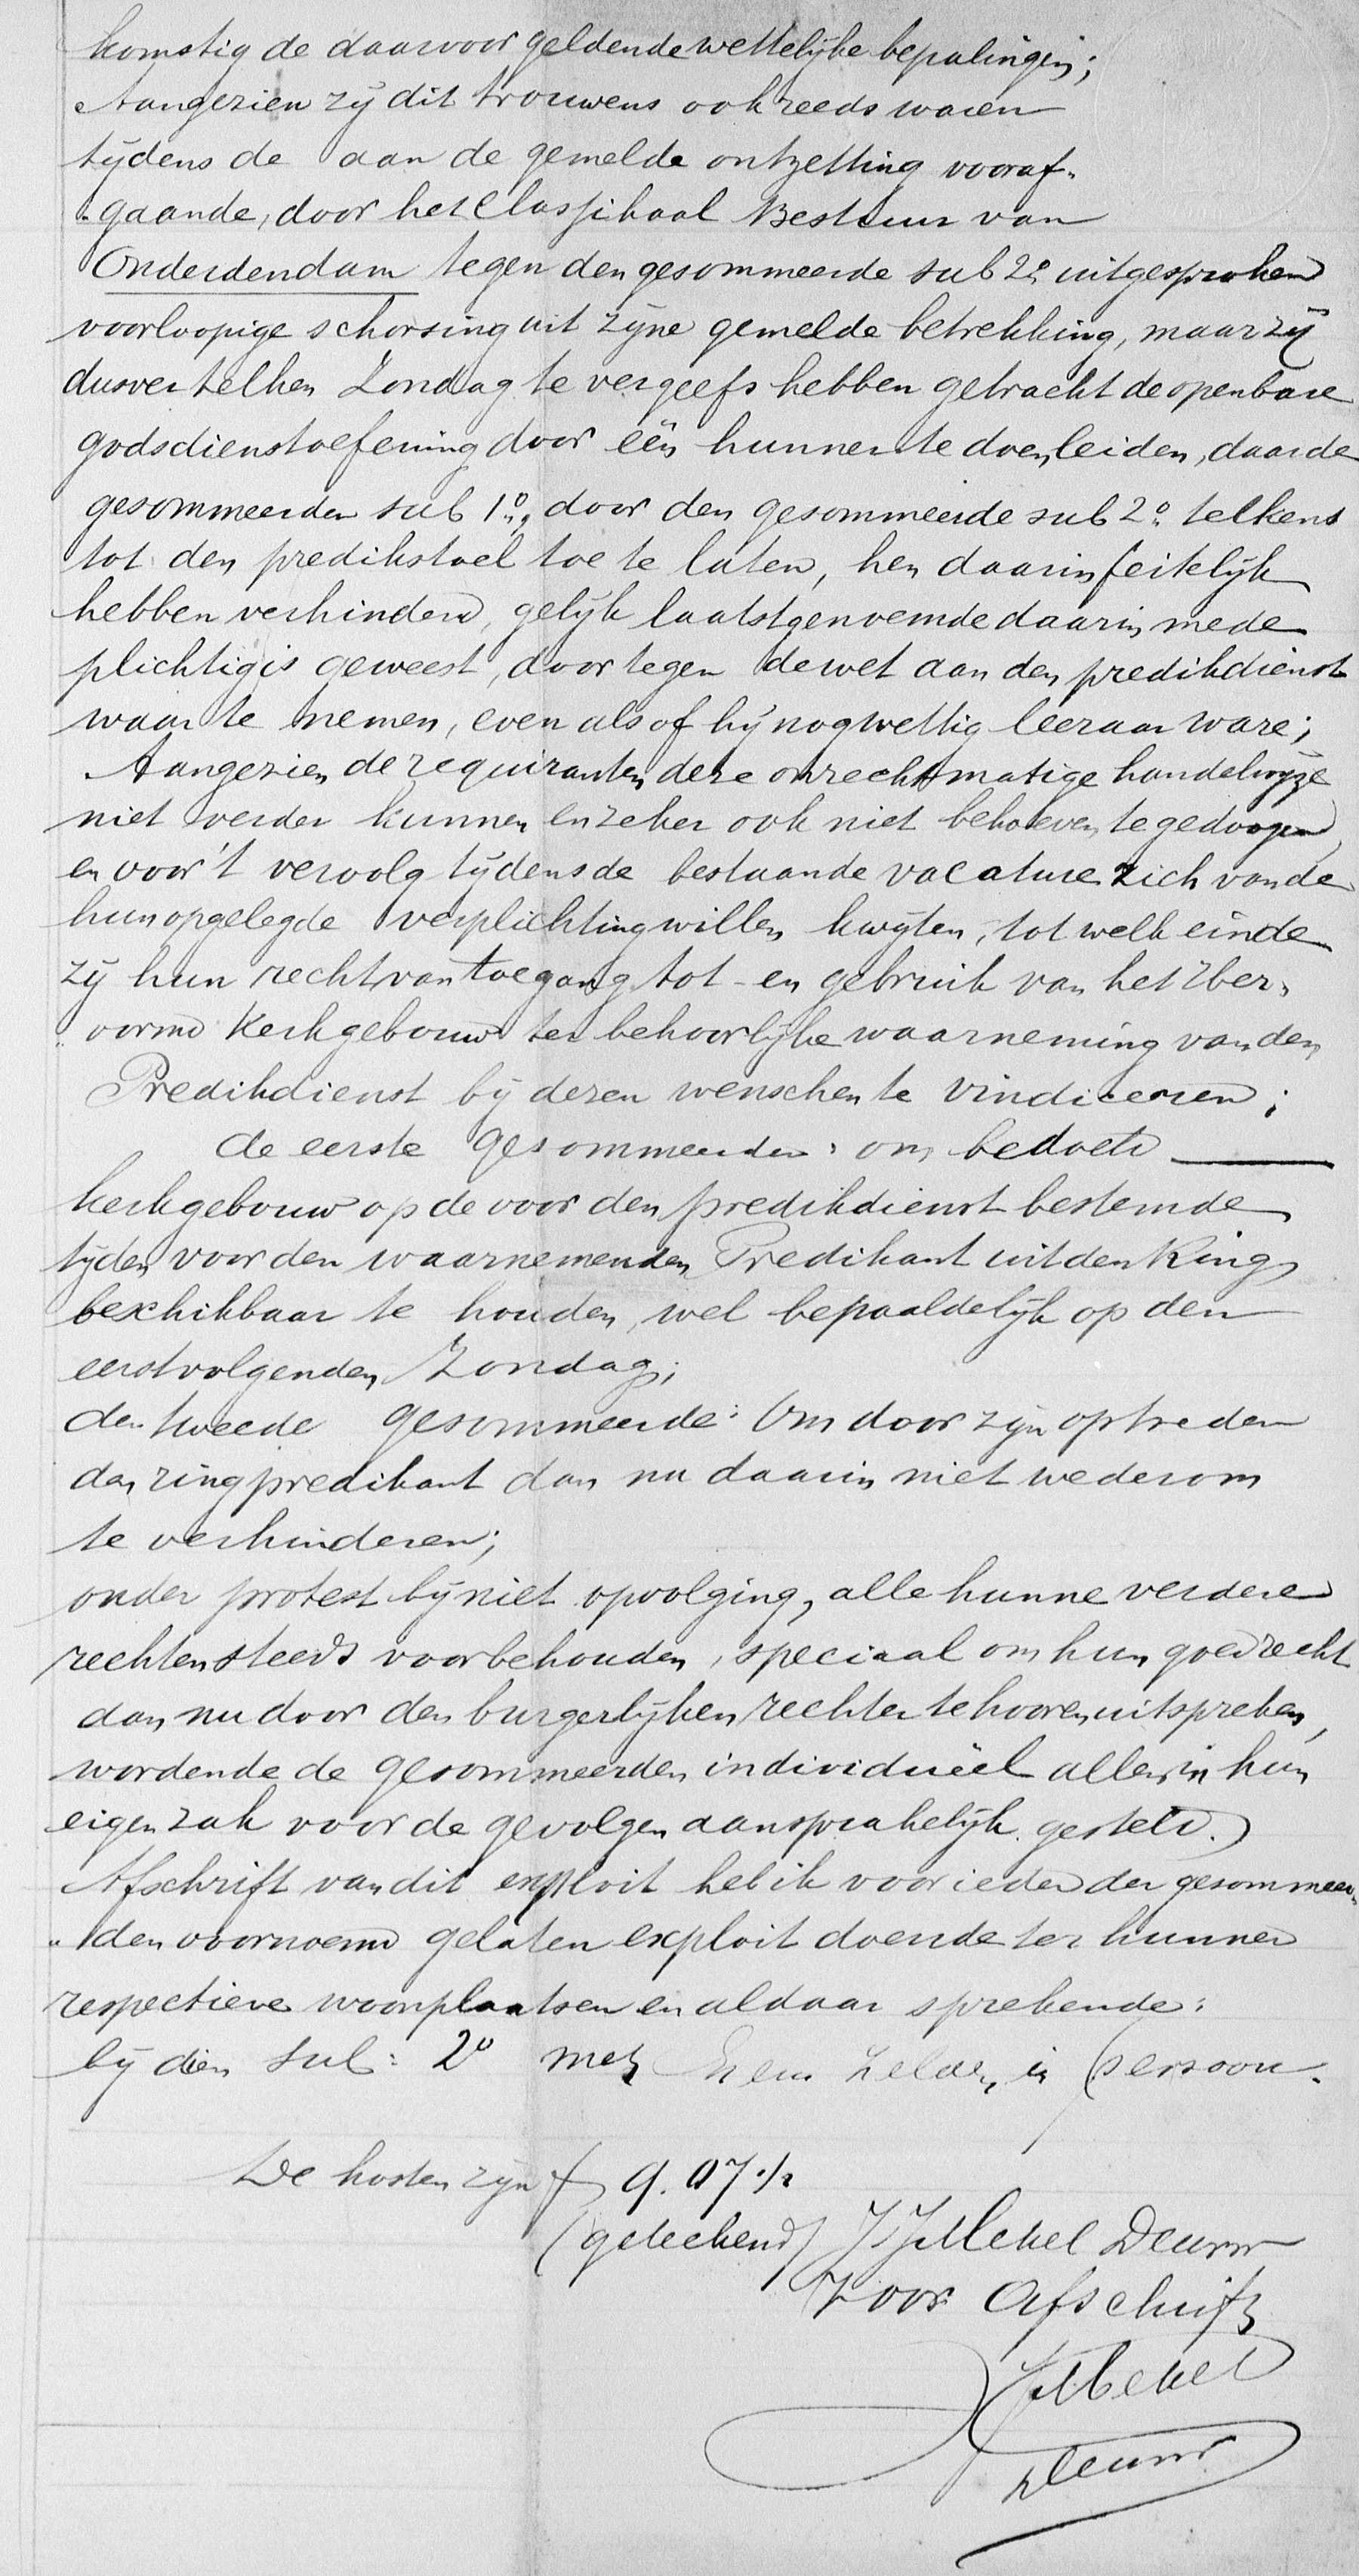 komstig de daarvoor geldende wettelijke bepalingen;
Aangezien zij dit trouwens ook reeds waren
tijdens de aan de gemelde ontzetting vooraf-
-gaande, door het Classikaal Bestuur van
Onderdendam tegen den gesommeerde sub 2o uitgesproken
voorloopige schorsing uit zijne gemelde betrekking, maar zij
dusver telken Zondag te vergeefs hebben getracht de openbare
godsdienstoefening door één hunner te doen leiden, daar de
gesommeerden sub 1o, door den gesommeerde sub 2o telkens
tot den predikstoel toe te laten, hen daarin feitelijk
hebben verhinderd, gelijk laatstgenoemde daarin mede
plichtig is geweest, door tegen de wet aan den predikdienst
waar te nemen, even als of hij nog wettig leeraar ware;
Aangezien de requiranten deze onrechtmatige handelwijze
niet verder kunnen en zeker ook niet behoeven te gedoogen,
en voor 't vervolg tijdens de bestaande vacature zich van de
hun opgelegde verplichting willen kwijten, tot welk einde
zij hun recht van toegang tot - en gebruik van het Her-
-vormd Kerkgebouw ter behoorlijke waarneming van den
Predikdienst bij dezen wenschen te vindiceeren;
de eerste gesommeerden: om bedoeld
kerkgebouw op de voor den predikdienst bestemde
tijden voor den waarnemenden Predikant uit den Ring
beschikbaar te houden, wel bepaaldelijk op den
eerstvolgenden Zondag;
den tweede gesommeerde: Om door zijn optreden
den ringpredikant dan nu daarin niet wederom
te verhinderen;
onder protest bij niet opvolging, alle hunne verdere
rechten steeds voorbehouden, speciaal om hun goed recht
dan nu door den burgerlijken rechter te hooren uitspreken,
wordende de gesommeerden individuëel allen in hun
eigen zak voor de gevolgen aansprakelijk gesteld.
Afschrift van dit exploit heb ik voor ieder der gesommeer-
-den voornoemd gelaten exploit doende ter hunner
respectieve woonplaatsen en aldaar sprekende:
bij dien sub: 2o met hem zelden in persoon.
De kosten zijn f 9.07 ½
(geteekend) J J Mekel Deurw
Voor Afschrift
JJ Mekel
Deurw